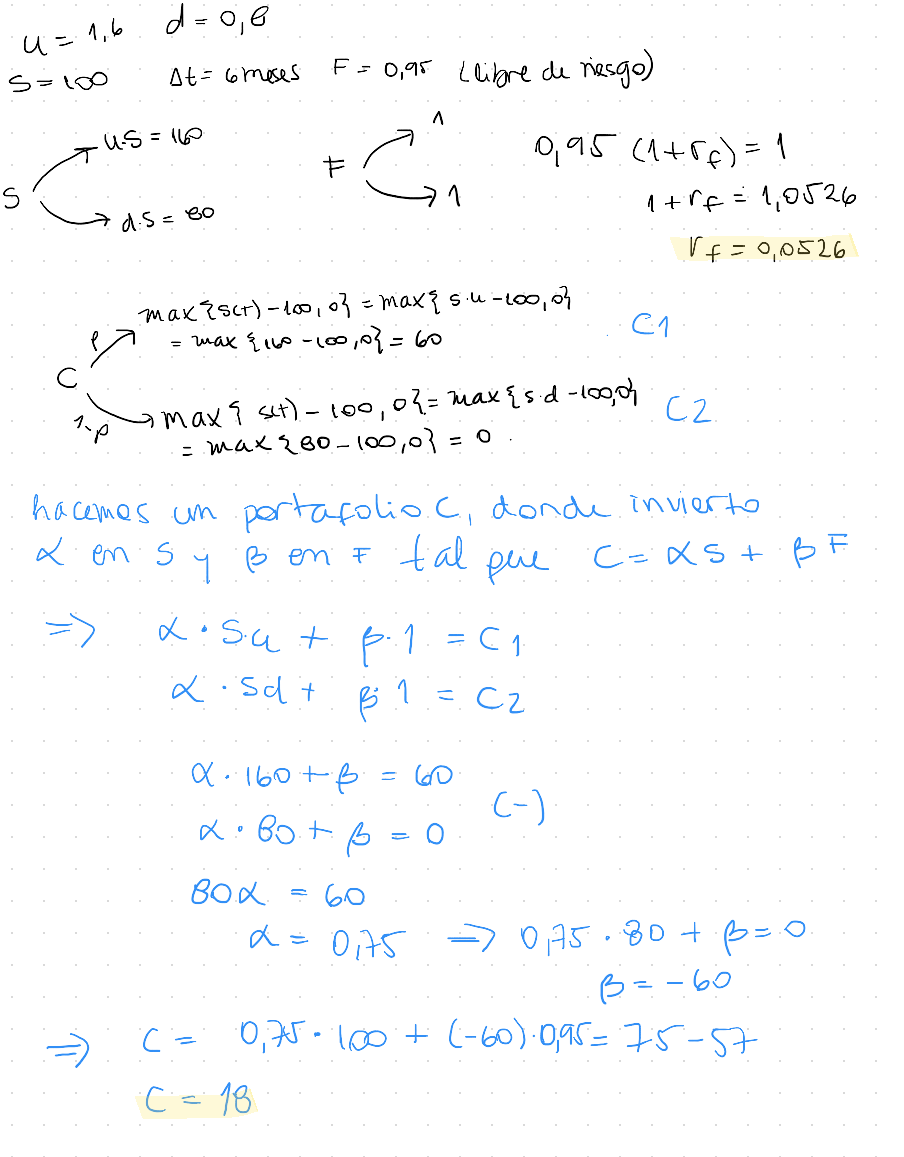 u = 1,6   d = 0,8
S = 100   Δt = 6 meses   F = 0,95 (libre de riesgo)
S   u.S = 160   d.S = 80
F   1   1
0,95 (1+rf) = 1
1+rf = 1,0526
rf = 0,0526
max{S(T) - 100, 0} = max{S.u - 100, 0}
= max{160 - 100, 0} = 60
C1
C   p   1-p
max{S(t) - 100, 0} = max{S.d - 100,0}
= max{80 - 100, 0} = 0.
C2
hacemos un portafolio C, donde invierto
α en S y β en F tal que C = αS + βF
=> α · S.u + β · 1 = C1
α · Sd + β · 1 = C2
α · 160 + β = 60
α · 80 + β = 0
(-)
80α = 60
α = 0,75 => 0,75 · 80 + β = 0
β = -60
=> C = 0,75 · 100 + (-60) · 0,95 = 75 - 57
C = 18